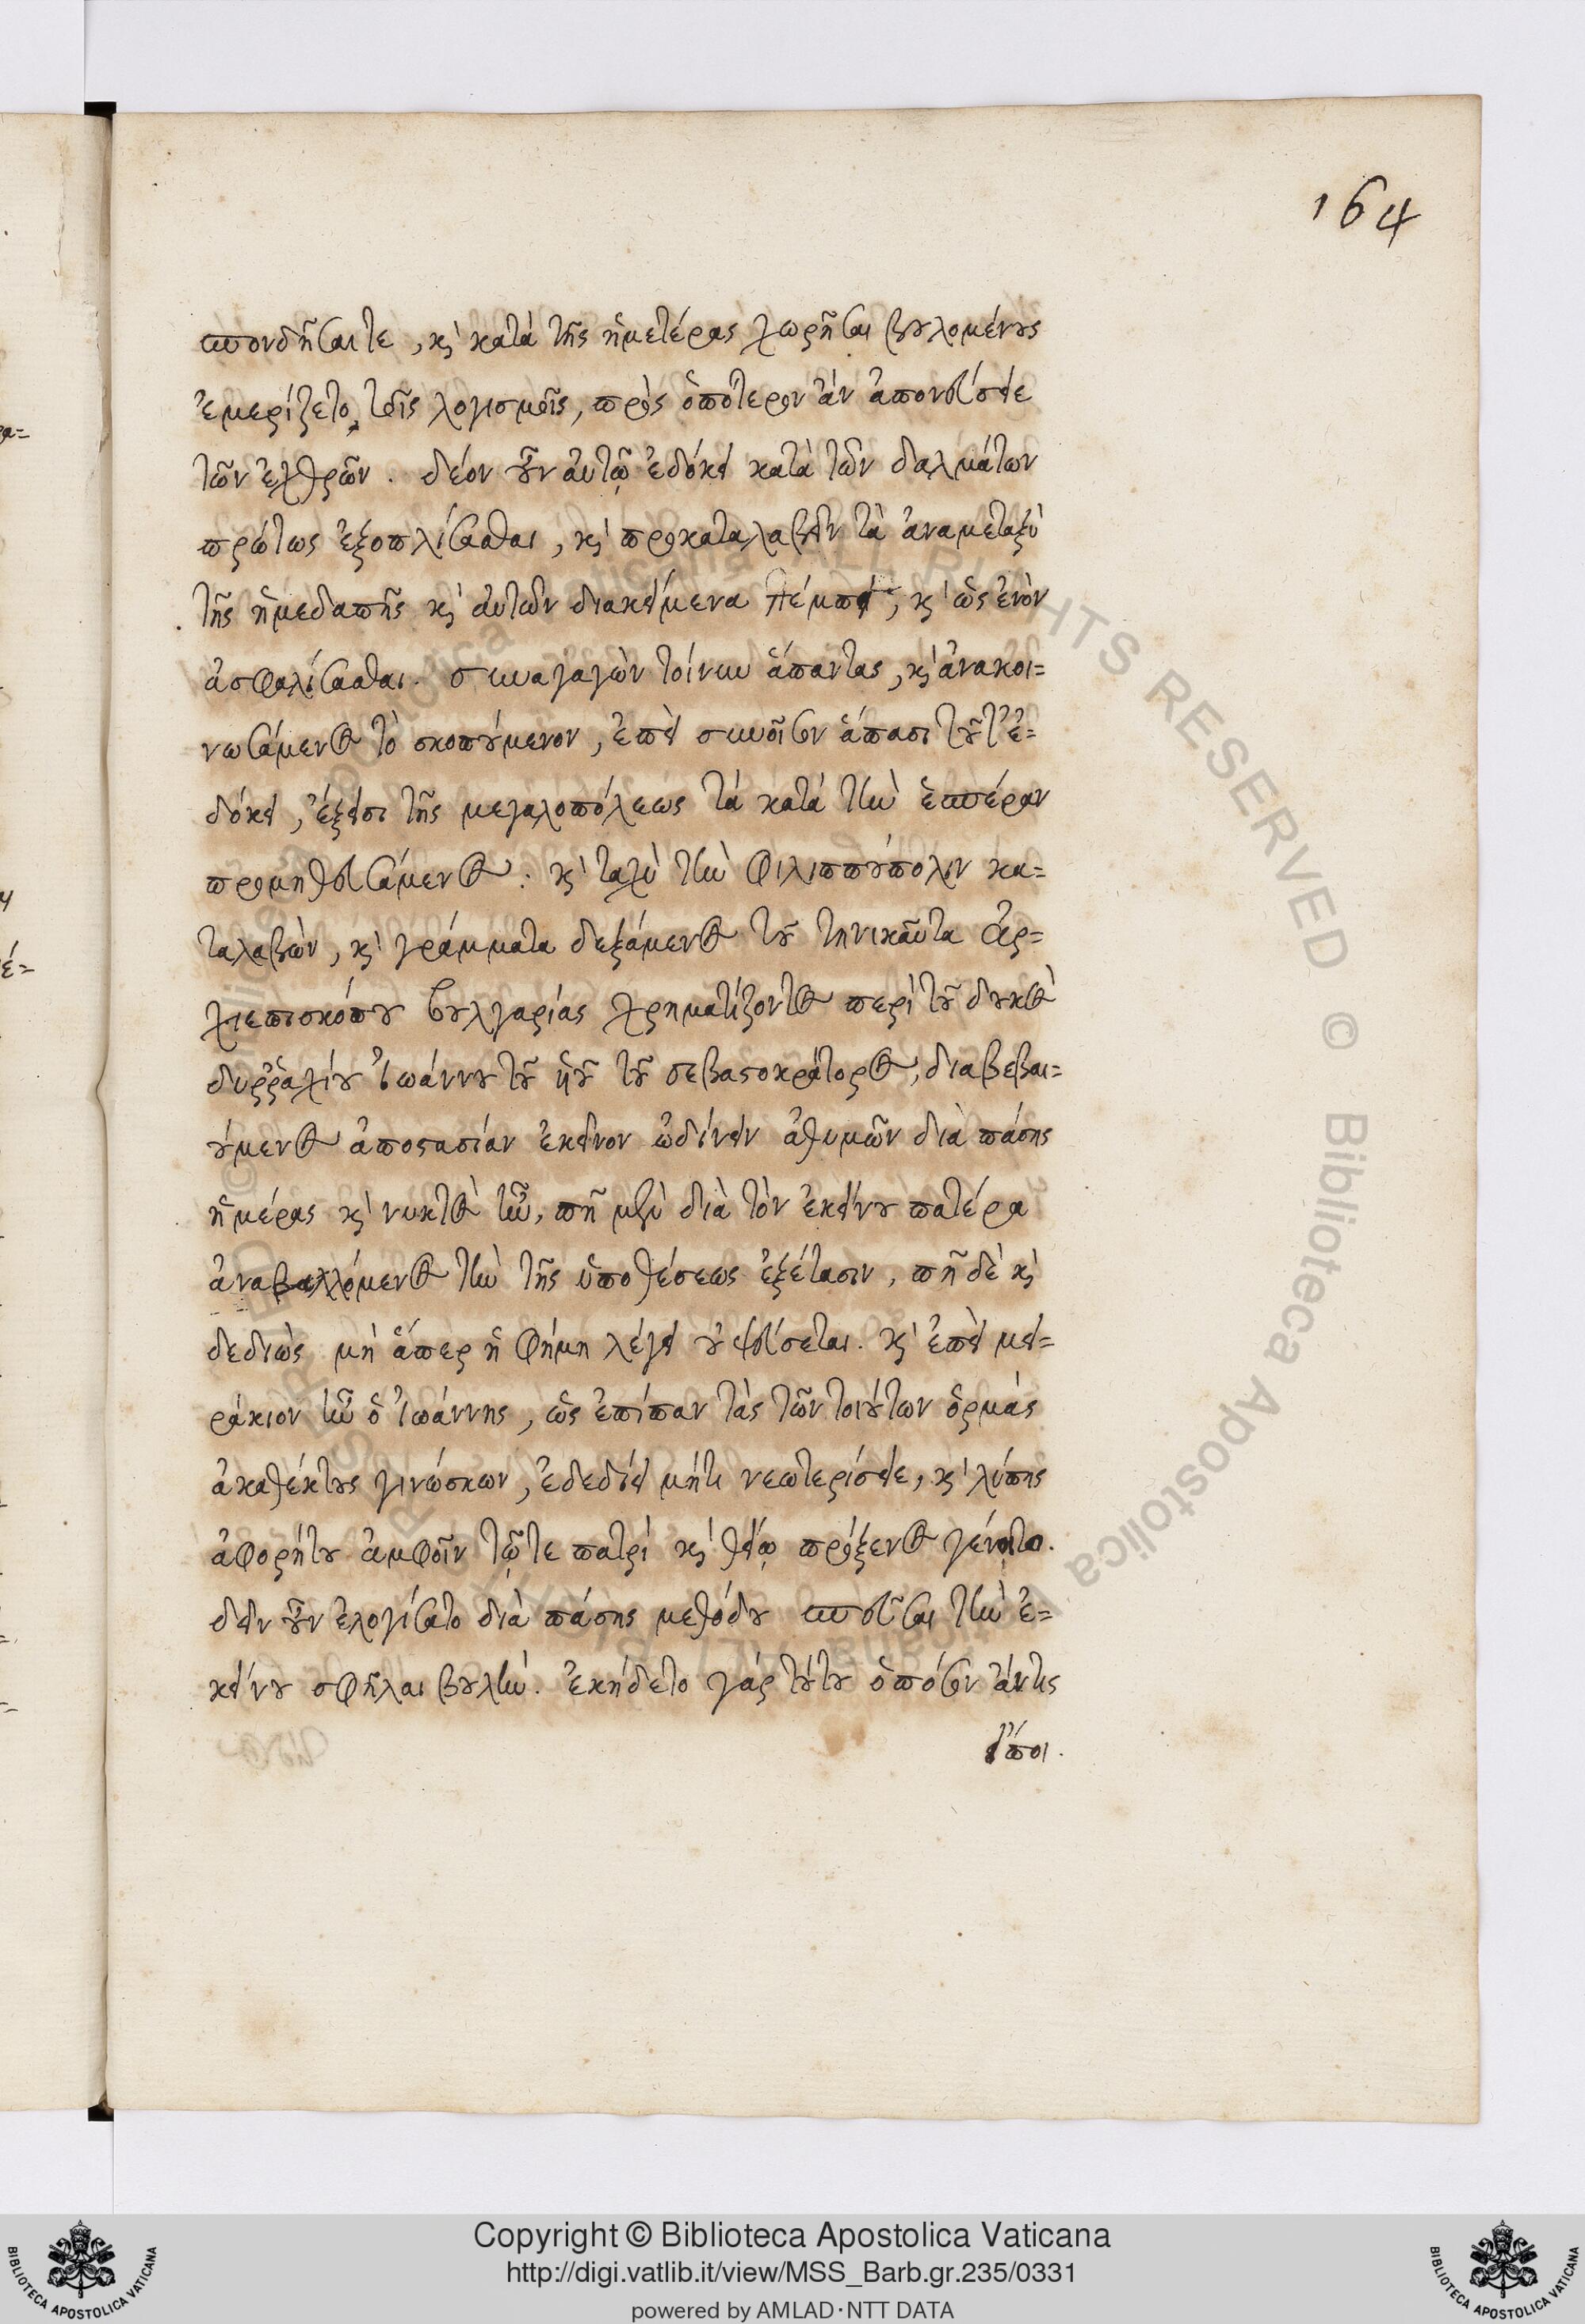 164
σπονδῆσαί τε, κὶ κατὰ τῆς ἡμετέρας χωρῆσαι βουλομένους
ἐμερίζετο τοῖς λογισμοῖς, πρὸς ὁπότερον ἂν ἀπονεύσειε
τῶν ἐχθρῶν. δέον οὖν αὐτῷ ἐδόκει κατὰ τῶν δαλμάτων
πρώτως ἐξοπλίσασθαι, κὶ προκαταλαβεῖν τὰ ἀναμεταξὺ
τῆς ἡμεδαπῆς κὶ αὐτῶν διακείμενα τέμπη, κὶ ὡς ἐνὸν
ἀσφαλίσασθαι. συναγαγὼν τοίνυν ἅπαντας, κὶ ἀνακοι=
νωσάμενος τὸ σκοπούμενον, ἐπεὶ συνοῖσον ἅπασι τοῦτ' ἐ=
δόκει, ἔξεισι τῆς μεγαλοπόλεως τὰ κατὰ τὴν ἑσπέραν
προμηθευσάμενος: κὶ ταχὺ τὴν Φιλιππούπολιν κα=
ταλαβὼν, κὶ γράμματα δεξάμενος τοῦ τηνικαῦτα ἀρ=
χιεπισκόπου βουλγαρίας χρηματίζοντος περὶ τοῦ δουκὸς
δυῤῥαχίου Ἰωάννου τοῦ ὑοῦ τοῦ σεβαστοκράτορος, διαβεβαι=
ούμενος ἀποστασίαν ἐκεῖνον ὠδίνειν ἀθυμῶν διὰ πάσης
ἡμέρας κὶ νυκτὸς ἦν, πῆ μὲν διὰ τὸν ἐκείνου πατέρα
ἀναβαλλόμενος τὴν τῆς ὑποθέσεως ἐξέτασιν, πῆ δὲ κὶ
δεδιὼς μὴ ἅπερ ἡ φήμη λέγει οὐ ψεύσεται. κὶ ἐπεὶ μει=
ράκιον ἦν ὁ Ἰωάννης, ὡς ἐπίπαν τὰς τῶν τοιούτων ὁρμὰς
ἀκαθέκτους γινώσκων, ἐδεδίει μήτι νεωτερίσειε, κὶ λύπης
ἀφορήτου ἀμφοῖν τῷ τε πατρὶ κὶ θείῳ πρόξενος γένοιτο.
δεῖν οὖν ἐλογίσατο διὰ πάσης μεθόδου σπεῦσαι τὴν ἐ=
κείνου σφῆλαι βουλήν. ἐκήδετο γὰρ τούτου ὁπόσον ἄν τις
εἴποι.
Copyright © Biblioteca Apostolica Vaticana
http://digi.vatlib.it/view/MSS_Barb.gr.235/0331
powered by AMLAD·NTT DATA